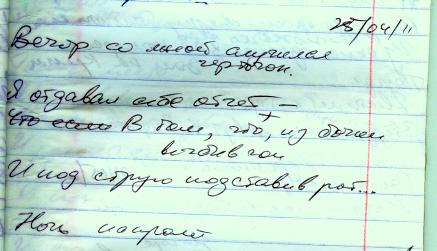 25/04/11
Вечор со мной случился
чертогон.
Я отдавал себе отчёт –
Что если В том, что, из бочки
выбив гон
И под струю подставив рот...
Ночь напролёт